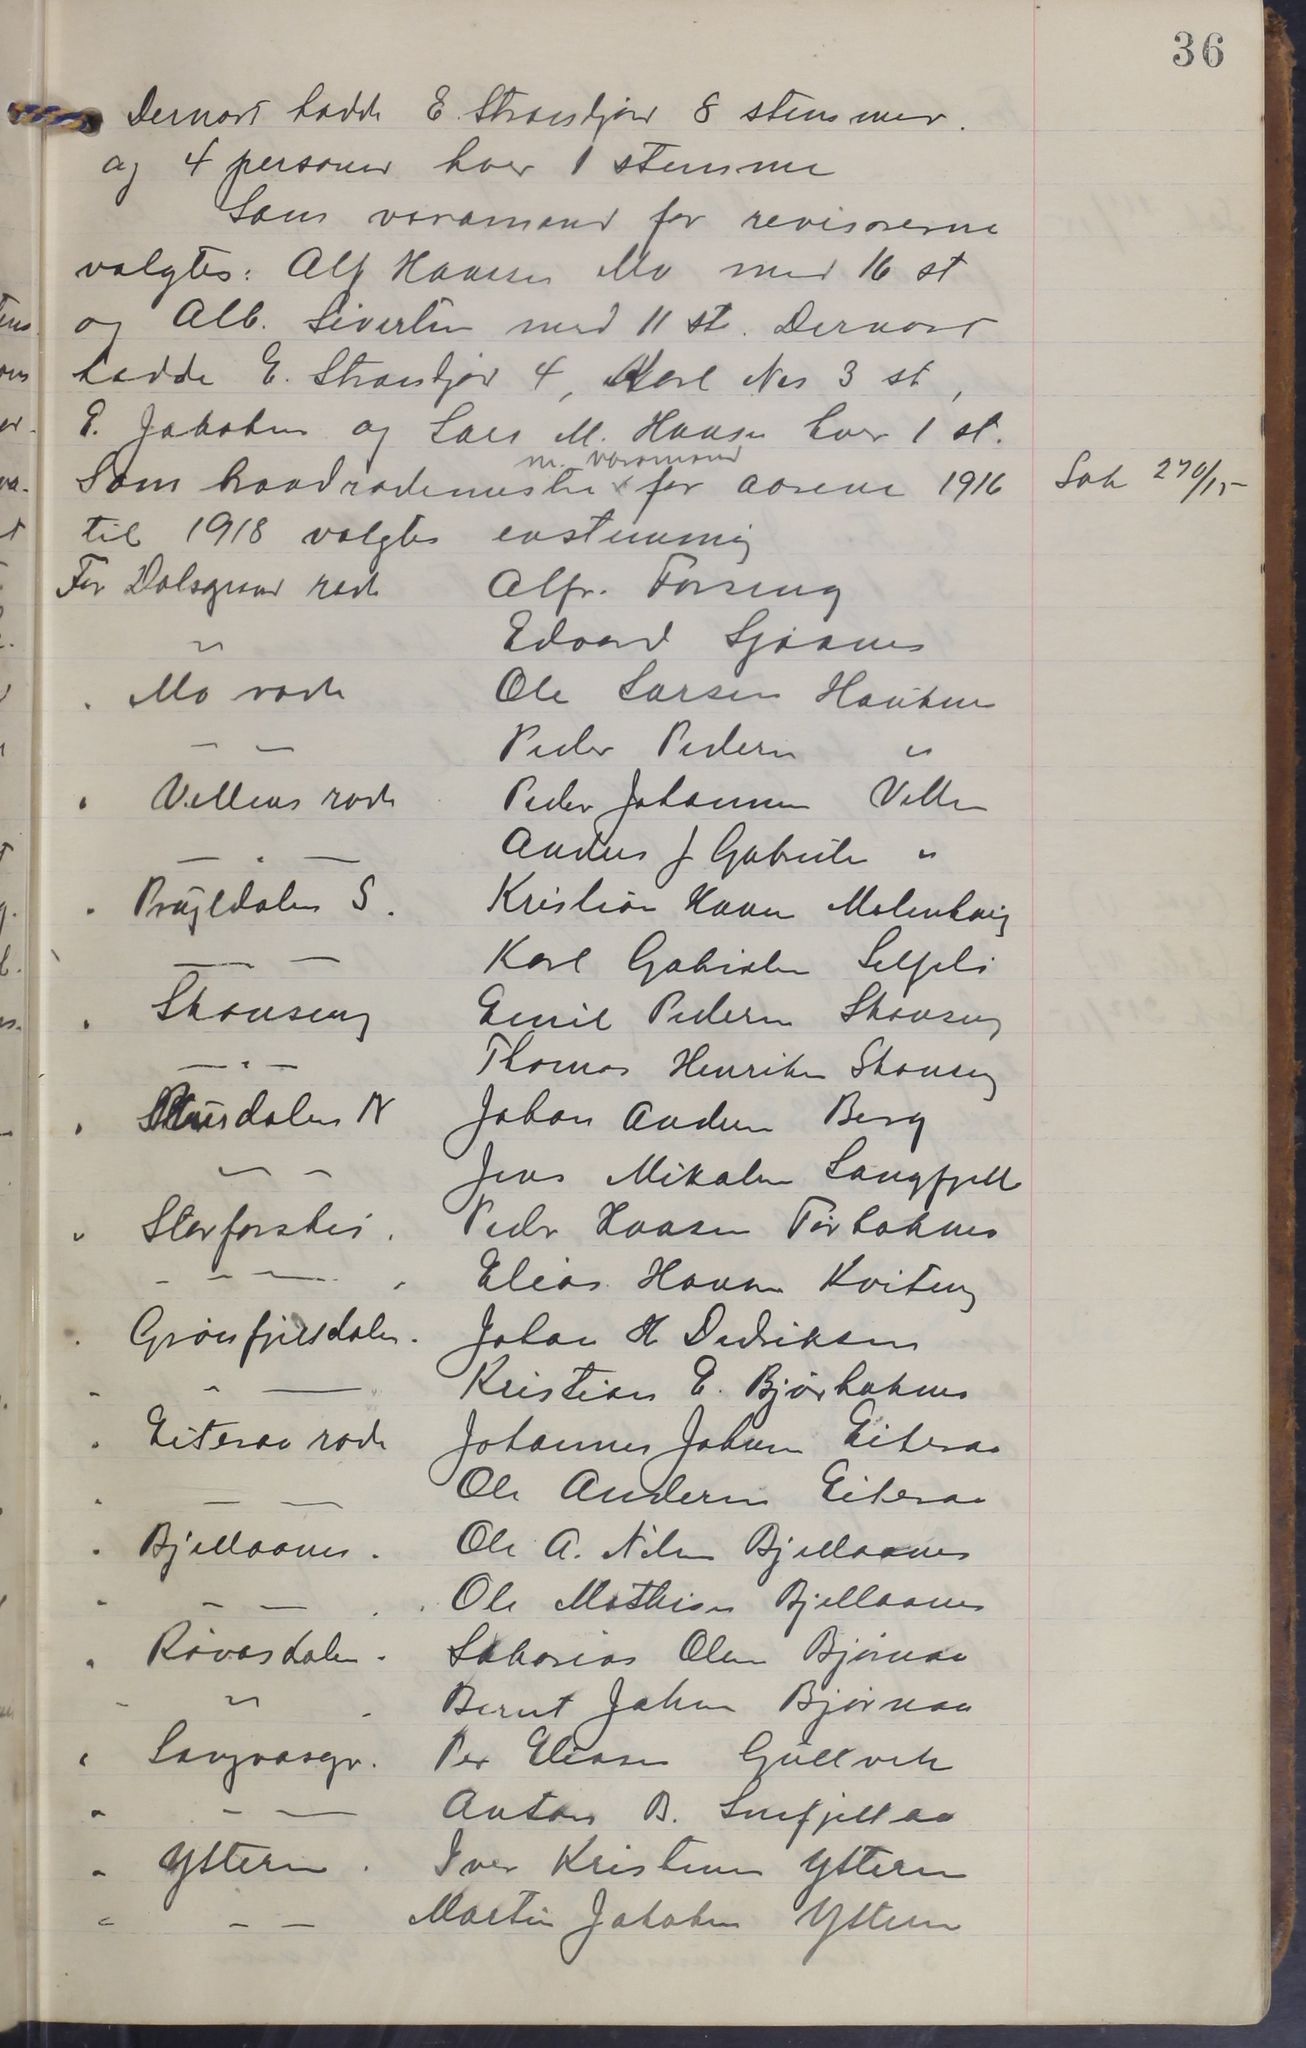 36
Dernæst hadde E. Strandjord 8 stemmer.
og 4 personer hver 1 stemme
Som varamænd for revisorerne
valgtes: Alf Hansen Mo med 16 st
og Alb. Sivertsen med 11 st. Dernæst
hadde E. Strandjord 4, Karl Nes 3 st,
E. Jakobsen og Lars M. Hansen hver 1 st.
m. varamænd
Som brandrodemestre for aarene 1916
Sak 270/15
til 1918 valgtes enstemmig
For Dalsgrend rode Alfr. Forseng
" Edvard Sjaanes
" Mo rode Ole Larsen Hauknes
— — Peder Pedersen "
" Villens rode Peder Johannesen Villen
— " — Anders J Gabrielsen "
" S. Kristian Hansen Molenhaug
— — Karl Gabrielsen Selfoli
" Skonseng Emil Pedersen Skonseng
— " — Thomas Henriksen Skonseng
" N Johan Andersen Berg
— — Jens Mikalsen Langfjell
" Storforshei. Peder Hansen Førbaknes
- - — Elias Hansen Kviteng
" Grønfjelldalen. Johan H Dedriksen
" - — Kristian E. Bjørbaknes
" Eiteraa rode Johannes Johnsen Eiteraa
" — — Ole Andersen Eiteraa
" Bjellaanes. Ole A. Nilsen Bjellaanes
" — — Ole Mathisen Bjellaanes
" Røvasdalen. Sakarias Olsen Bjørnaa
" " Bernt Johnsen Bjørnaa
" Langvasgr. Per Eliasen Gullvik
" - — Anton B. Snefjellaa
" Ytteren. Iver Kristensen Ytteren
" — — Martin Jakobsen Ytteren